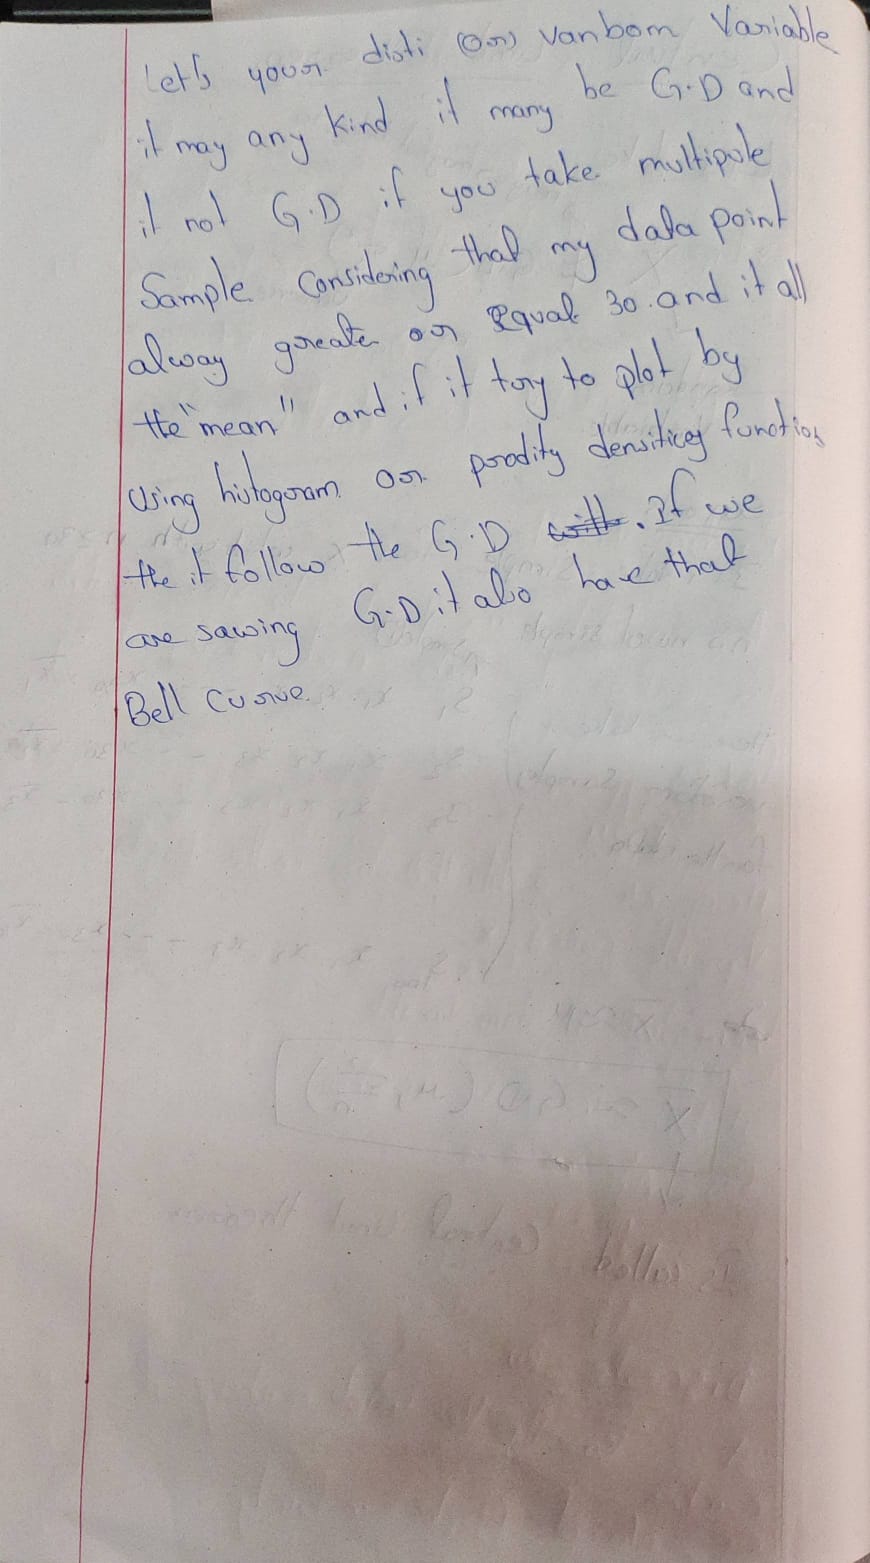 Let's your disti (or) vanbom Variable
it may any kind it many be G.D and
it not G.D if you take multipule
Sample Considering that my data point
alway greate or Equal 30. and it all
the "mean" and if it try to plot by
Using histogoram or prodity densiticy function
the it follow the G.D. If we
are sawing G.D it also have that
Bell Curve.